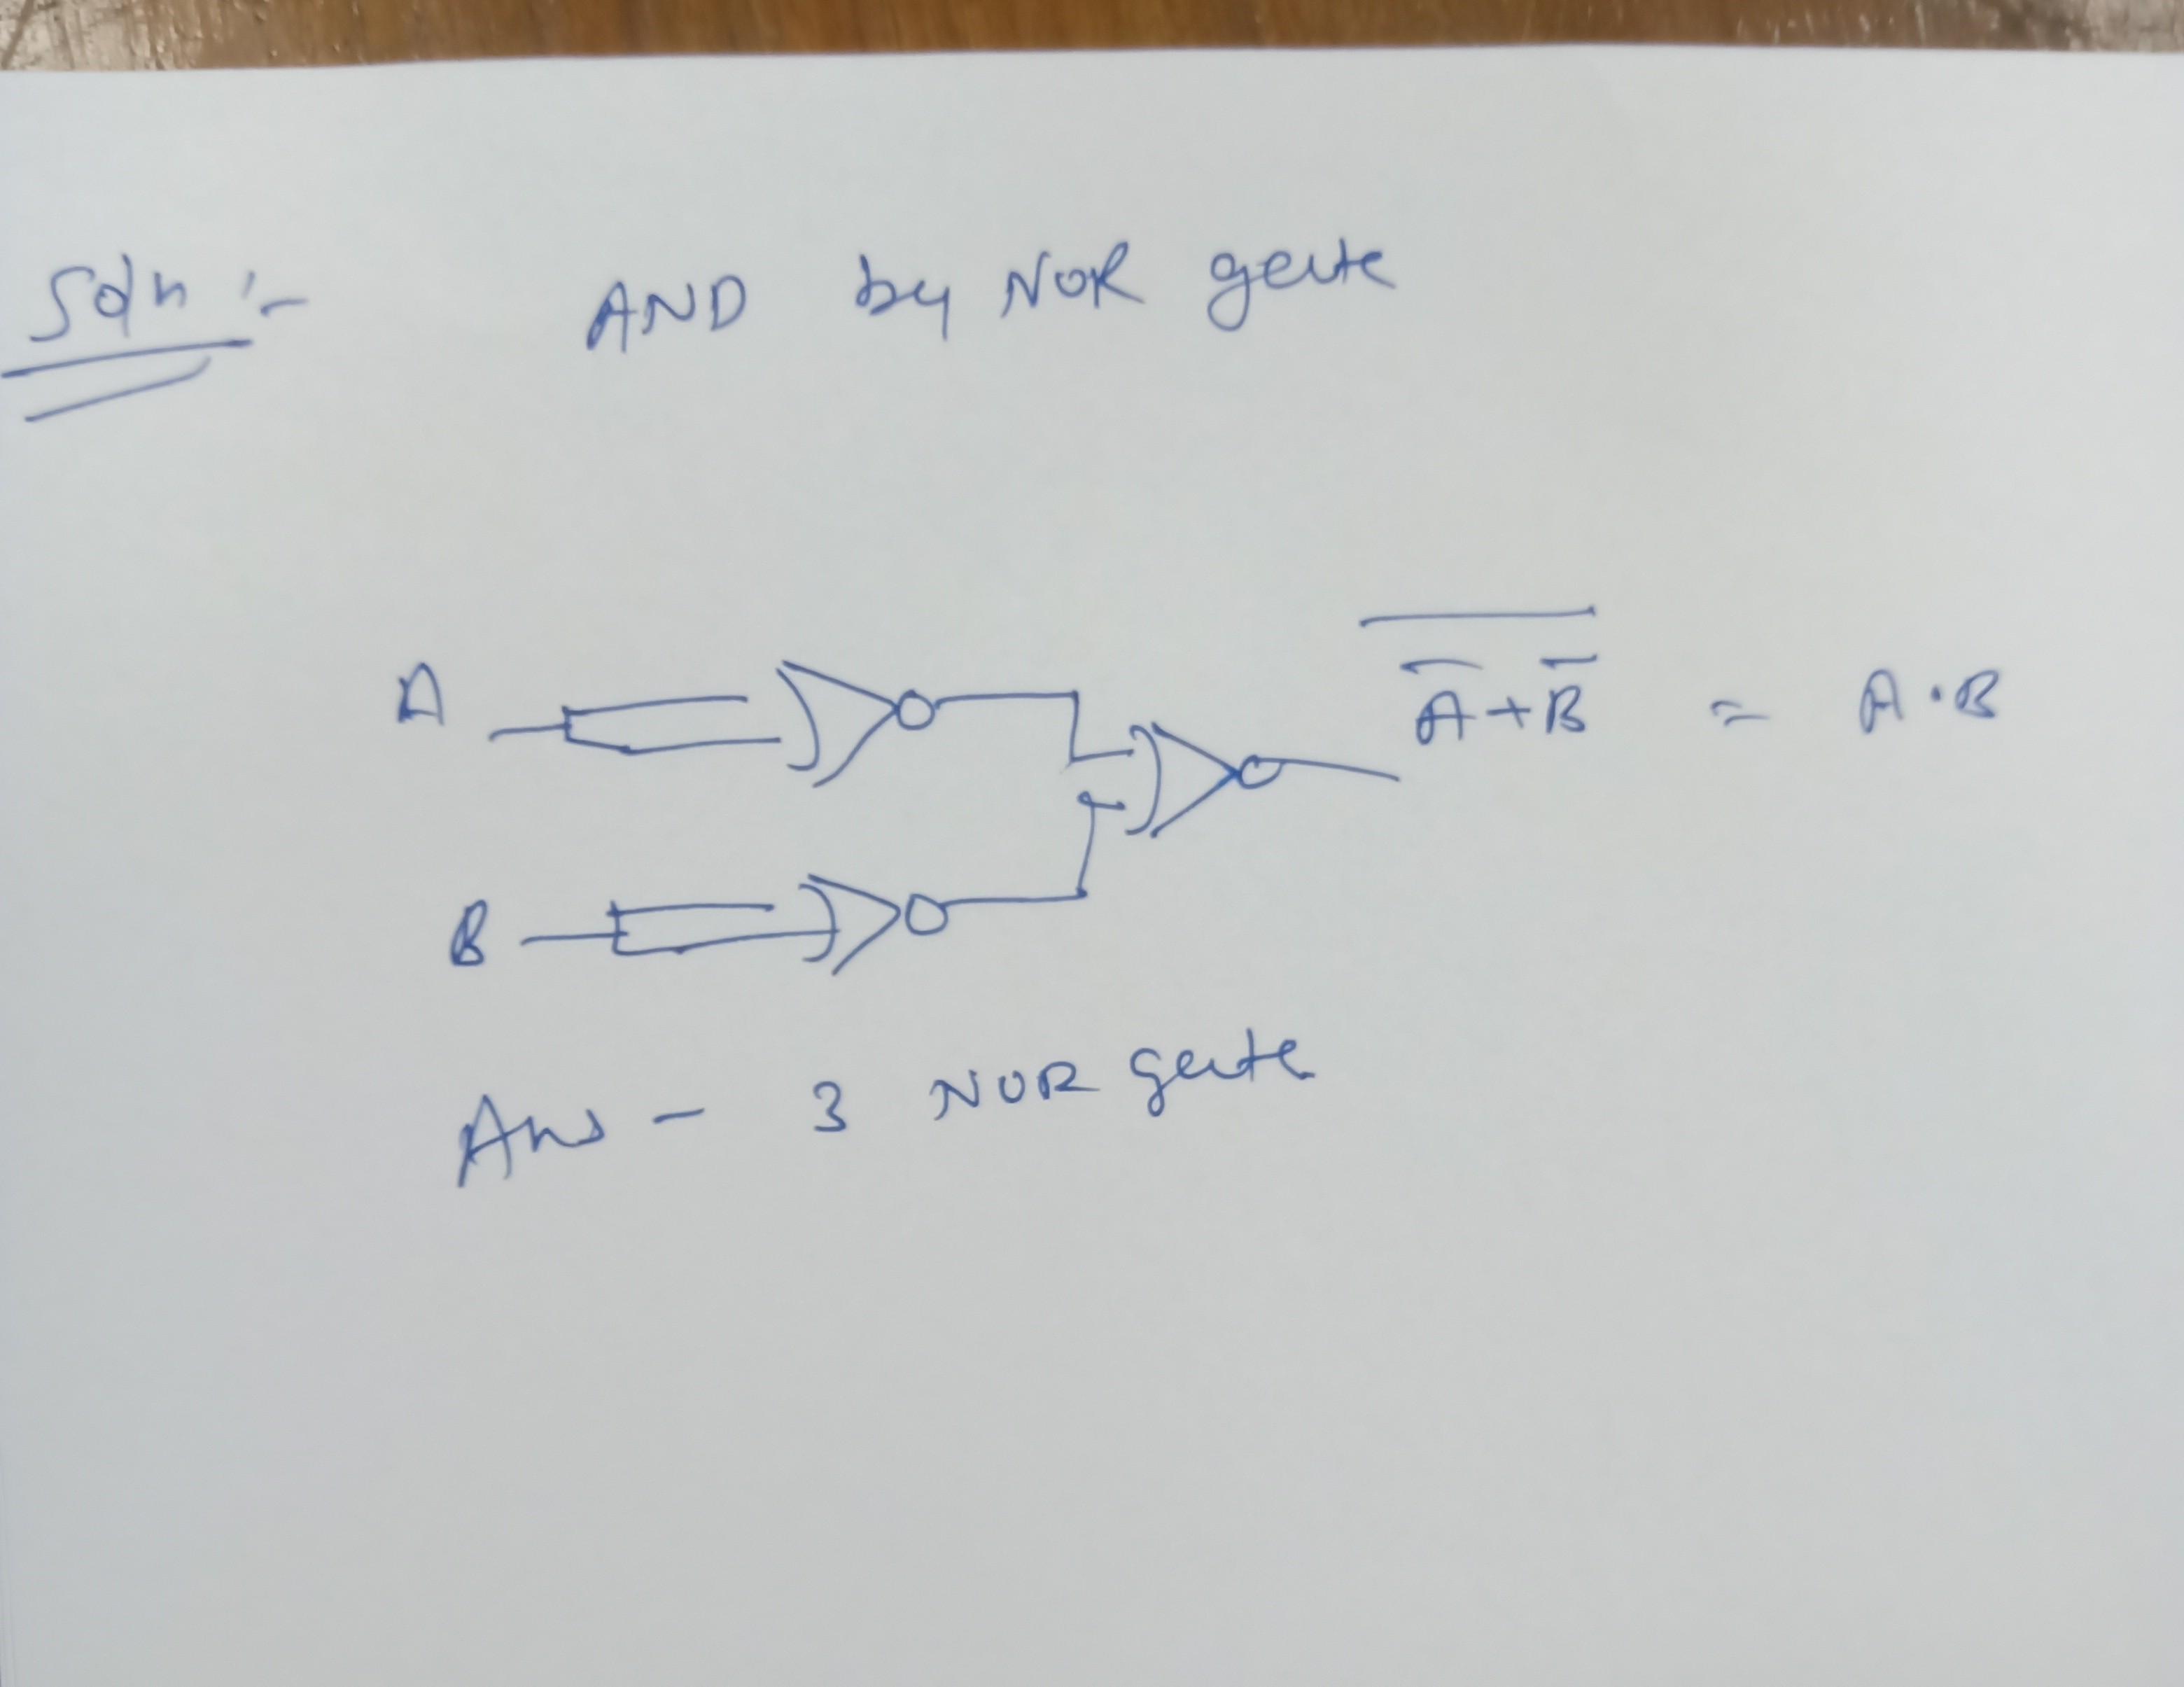 Soln :- AND by NOR gate
A
B
$\overline{\overline{A}+\overline{B}}$ = A·B
Ans - 3 NOR gate